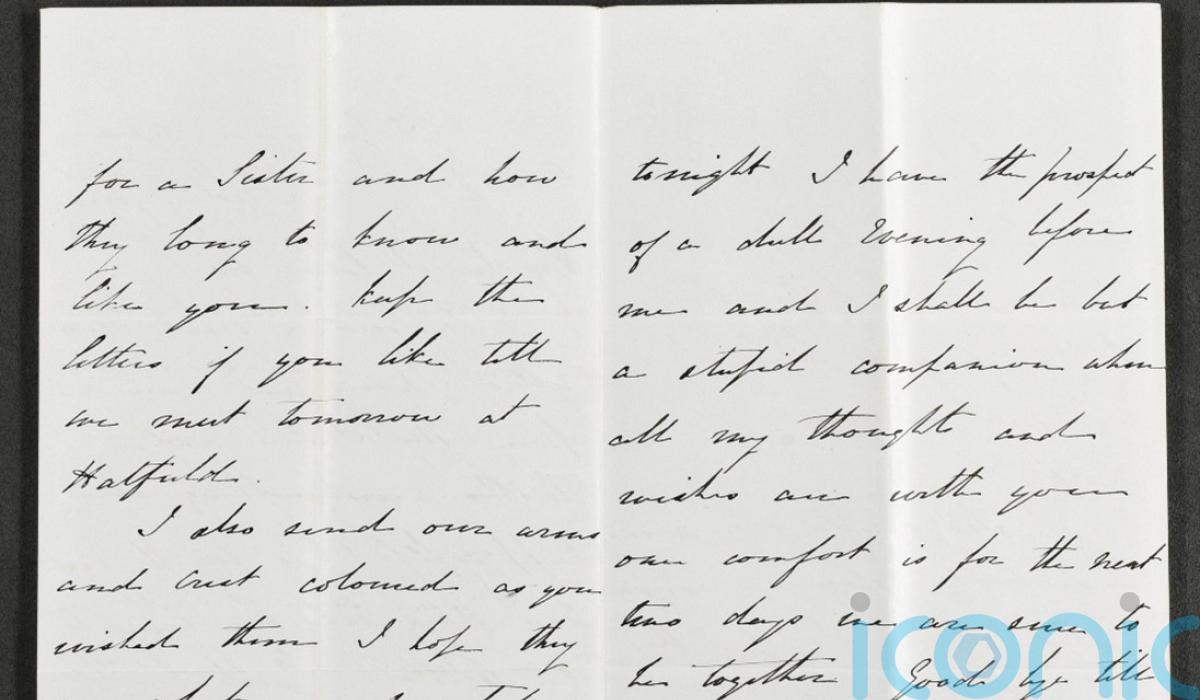 for a Sister and how
they long to know and
like you. Keep the
letters if you like till
we meet tomorrow at
Hatfield.
I also send our arms
and Crest coloured as you
wished them I hope they
tonight I have the prospect
of a dull Evening before
me and I shall be but
a stupid companion when
all my thoughts and
wishes are with you
one comfort is for the next
two days we are sure to
be together Good bye till
iconic